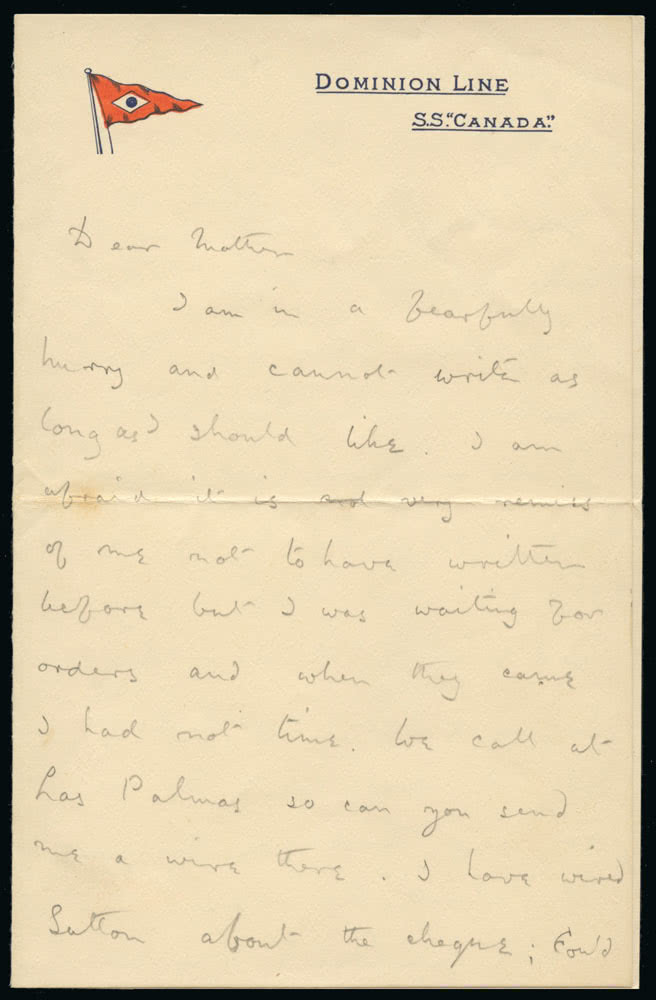 DOMINION LINE
S.S. "CANADA."
Dear Mother
I am in a fearfully
hurry and cannot write as
long as I should like. I am
afraid it is and very remiss
of me not to have written
before but I was waiting for
orders and when they came
I had not time. We call at
Las Palmas so can you send
me a wire there. I have wired
Sutton about the cheque;